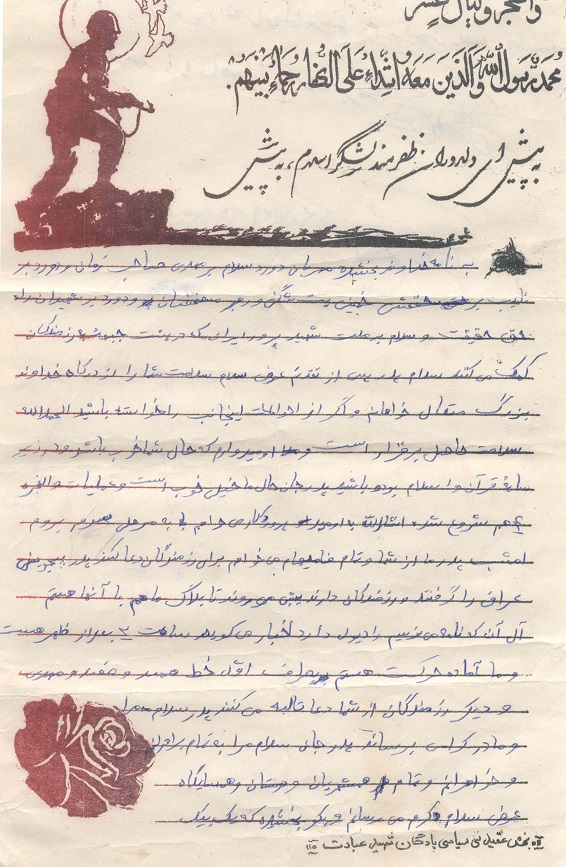 والفجر ولیال عشر
محمد رسول الله والذین معه اشداء علی الکفار رحماء بینهم
به پیش ای دلاوران ظفرمند لشگر اسلام، به پیش
به نام خداوند بخشنده مهربان درود و سلام بر مهدی صاحب زمان و درود بر
نایب بر حقش خمینی بت شکن و درود بر شهیدان راه
حق حقیقت و سلام بر ملت شهید پرور ایران که در پشت جبهه به رزمندگان
کمک می کنند سلام پدر پس از تقدیم عرض سلام سلامت شما را از درگاه خداوند
بزرگ متعال خواهانم و اگر از احوالات اینجانب را خواسته باشید الحمدالله
سلامت حاصل برقرار است و امیدوارم که حال شما خوب باشد و در زیر
سایه قرآن و اسلام بوده باشید پدر جان حال ما خیلی خوب است و عملیات والفجر
هم شروع شده انشالله به امید پروردگار می خواهم به مرحله بروم
امشب پدر ما از شما و تمام فامیلهام می خواهم برای رزمندگان دعا کنند پدر
عراق را گرفتند و رزمندگان دارند پیش می روند تا بلاک ما هم با آنها هستم
آل آن که نامه می نویسم رادیول دارد اخبار می گوید ساعت ۲ بعد از ظهر هست
و ما آماده حرکت هستیم بطرف اول خط
و دیگر رزمندگان از شما دعا طالبه می کنند پدر سلام مرا
و مادر گرامی برساند پدر جان سلام مرا به تمام برادران
و خواهرانم و تمام همشهریان و دوستان و همسایگاه
عرض سلام گرم می رسانم و دیگر بخشنده که یک بیک
عقیدتی سیاسی پادگان شهید عبادت